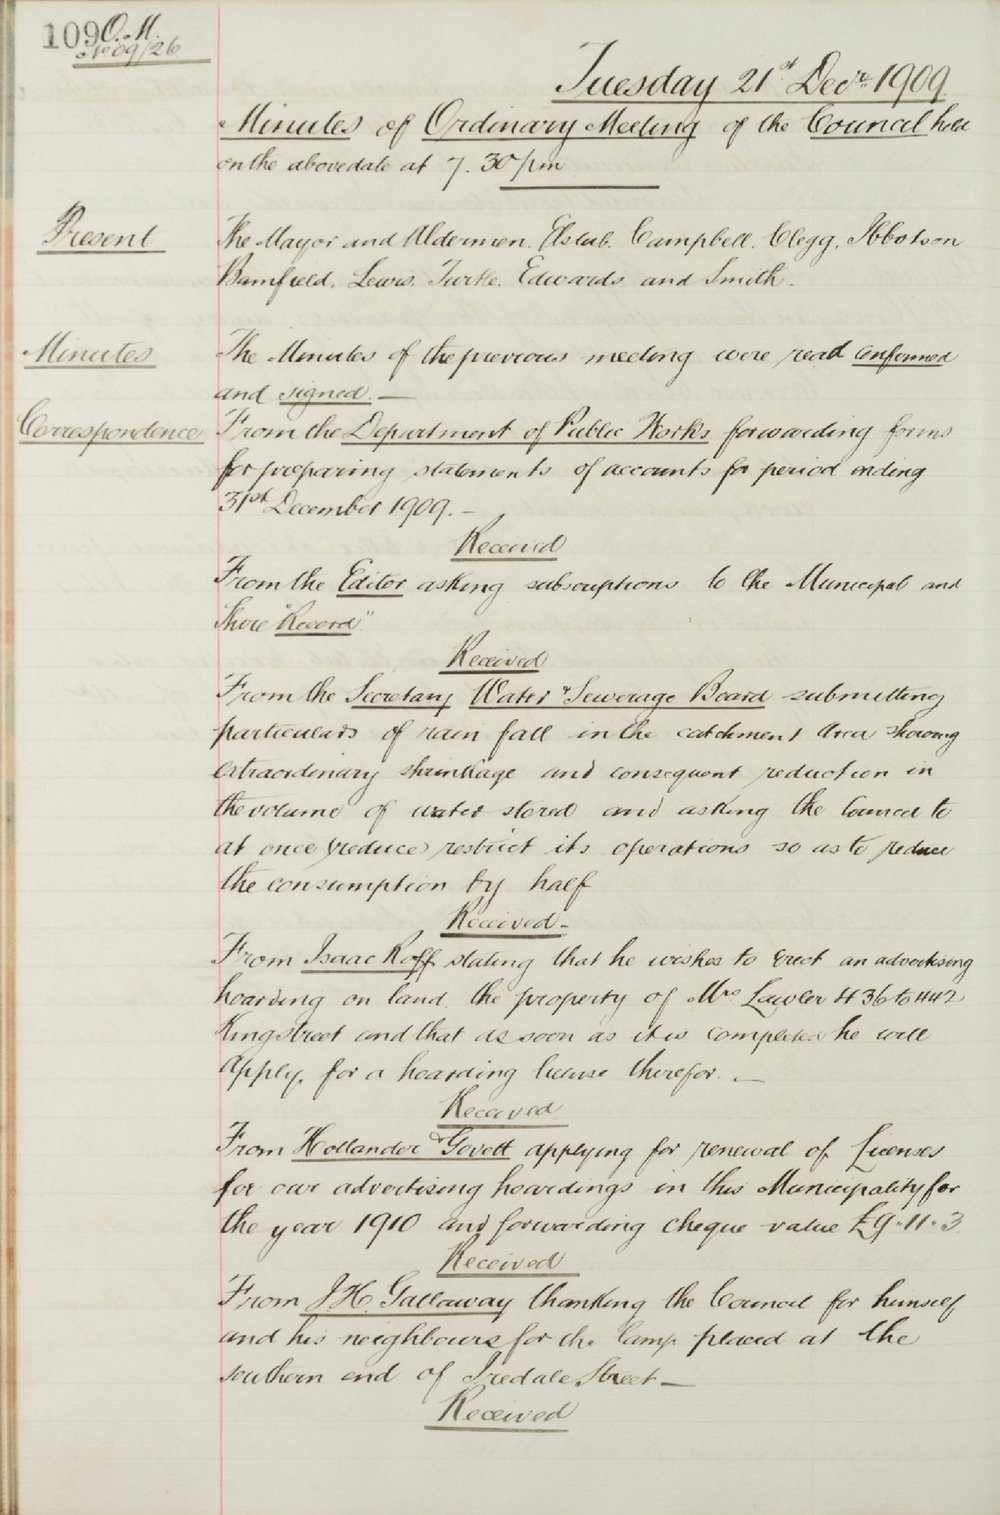 109 O.M.
No 09/26
Tuesday 21st Decr 1909.
Minutes of Ordinary Meeting of the Council held
on the abovedate at 7.30 pm
Present
The Mayor and Aldermen. Elstub. Campbell. Clegg. Ibbotson
Bamfield. Lewis. Turtle. Edwards and Smith.
Minutes
The Minutes of the previous meeting were read confirmed
and signed. —
Correspondence
From the Department of Public Works forwarding forms
for preparing statements of accounts for period ending
31st December 1909. –
Received
From the Editor asking subscriptions to the Municipal and
Shire "Record"
Received
From the Secretary Water & Sewerage Board submitting
particulars of rain fall in the catchment Area showing
extraordinary shrinkage and consequent reduction in
the volume of water stored and asking the Council to
at once (reduce) restrict its operations so as to reduce
the consumption by half
Received –
From Isaac Roff stating that he wishes to erect an advertising
hoarding on land. the property of Mrs Lawler 436 to 442
King street and that as soon as it is completed he will
Apply. for a hoarding license therefor. —
Received
From Hollander & Govett applying for renewal of Licenses
for our advertising hoardings in this Municipality for
the year 1910 and forwarding cheque value £9.11.3
Received
From J H. Gallaway thanking the Council for himself
and his neighbours for the lamp placed at the
southern end of Iredale Street —
Received